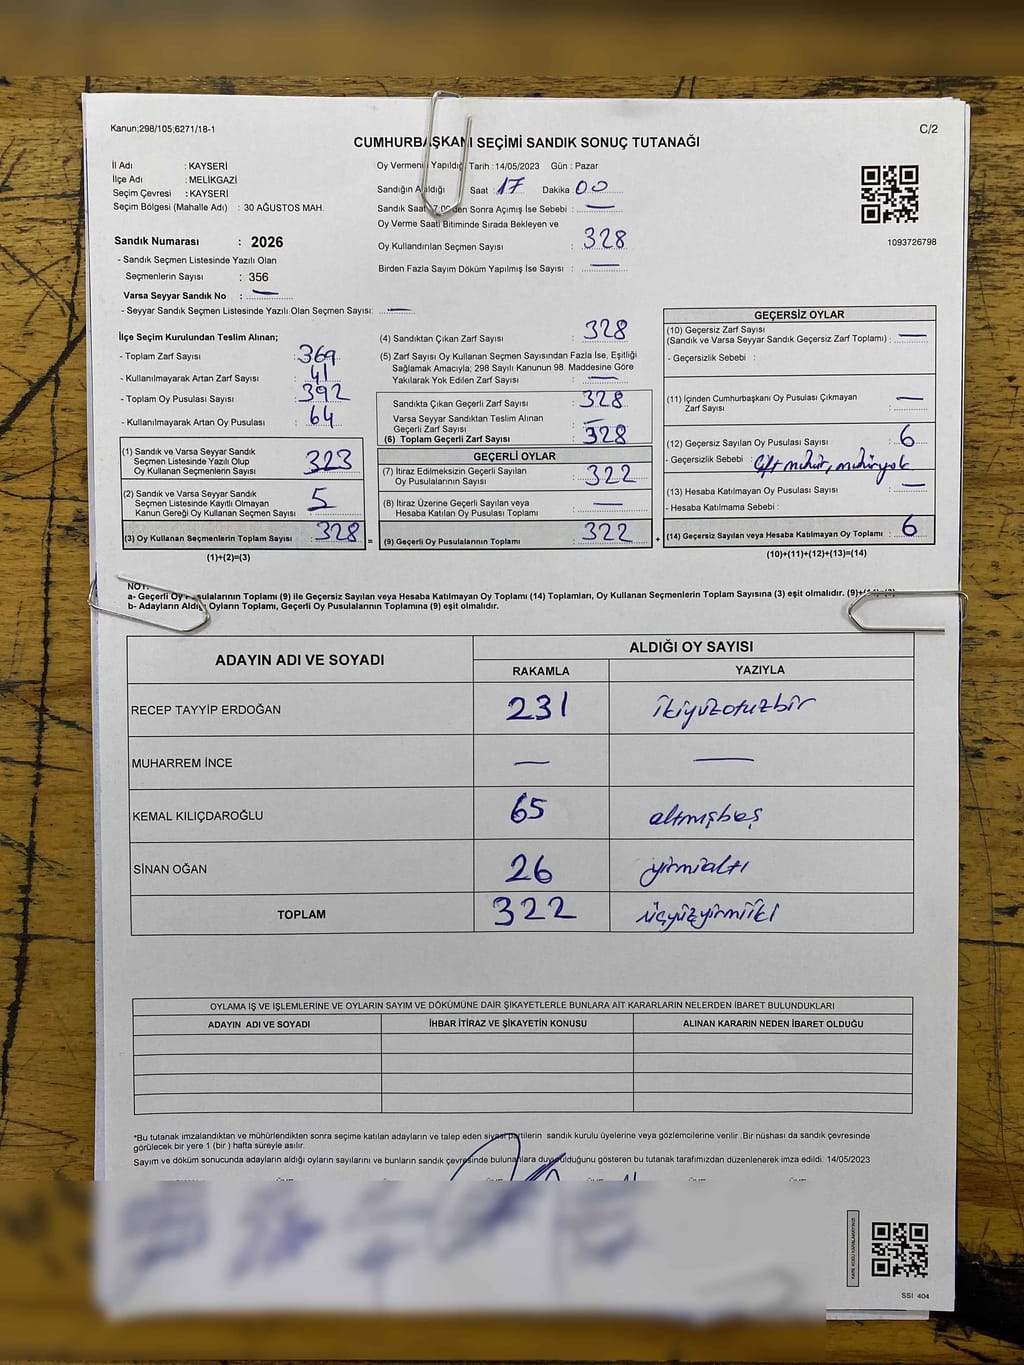 Kanun;298/105;6271/18-1
C/2
CUMHURBAŞKANI SEÇİMİ SANDIK SONUÇ TUTANAĞI
İl Adı : KAYSERİ
İlçe Adı : MELİKGAZİ
Seçim Çevresi : KAYSERİ
Seçim Bölgesi (Mahalle Adı) : 30 AĞUSTOS MAH.
Sandık Numarası : 2026
- Sandık Seçmen Listesinde Yazılı Olan
Seçmenlerin Sayısı : 356
Varsa Seyyar Sandık No : —
- Seyyar Sandık Seçmen Listesinde Yazılı Olan Seçmen Sayısı: —
Oy Vermenin Yapıldığı Tarih : 14/05/2023 Gün : Pazar
Sandığın Açıldığı Saat : 17 Dakika 00
Sandık Saat 17.00'den Sonra Açımış İse Sebebi : —
Oy Verme Saati Bitiminde Sırada Bekleyen ve
Oy Kullandırılan Seçmen Sayısı : 328
Birden Fazla Sayım Döküm Yapılmış İse Sayısı : —
1093726798
İlçe Seçim Kurulundan Teslim Alınan;
- Toplam Zarf Sayısı : 369
- Kullanılmayarak Artan Zarf Sayısı : 41
- Toplam Oy Pusulası Sayısı : 392
- Kullanılmayarak Artan Oy Pusulası : 64
(1) Sandık ve Varsa Seyyar Sandık
Seçmen Listesinde Yazılı Olup
Oy Kullanan Seçmenlerin Sayısı : 323
(2) Sandık ve Varsa Seyyar Sandık
Seçmen Listesinde Kayıtlı Olmayan
Kanun Gereği Oy Kullanan Seçmen Sayısı : 5
(3) Oy Kullanan Seçmenlerin Toplam Sayısı : 328 =
(1)+(2)=(3)
(4) Sandıktan Çıkan Zarf Sayısı : 328
(5) Zarf Sayısı Oy Kullanan Seçmen Sayısından Fazla İse, Eşitliği
Sağlamak Amacıyla; 298 Sayılı Kanunun 98. Maddesine Göre
Yakılarak Yok Edilen Zarf Sayısı : —
Sandıkta Çıkan Geçerli Zarf Sayısı : 328
Varsa Seyyar Sandıktan Teslim Alınan
Geçerli Zarf Sayısı : —
(6) Toplam Geçerli Zarf Sayısı : 328
GEÇERLİ OYLAR
(7) İtiraz Edilmeksizin Geçerli Sayılan
Oy Pusulalarının Sayısı : 322
(8) İtiraz Üzerine Geçerli Sayılan veya
Hesaba Katılan Oy Pusulası Toplamı : —
(9) Geçerli Oy Pusulalarının Toplamı : 322 +
GEÇERSİZ OYLAR
(10) Geçersiz Zarf Sayısı
(Sandık ve Varsa Seyyar Sandık Geçersiz Zarf Toplamı) : —
- Geçersizlik Sebebi :
(11) İçinden Cumhurbaşkanı Oy Pusulası Çıkmayan
Zarf Sayısı : —
(12) Geçersiz Sayılan Oy Pusulası Sayısı : 6
- Geçersizlik Sebebi : Çift mühür, mühür yok
(13) Hesaba Katılmayan Oy Pusulası Sayısı : —
- Hesaba Katılmama Sebebi :
(14) Geçersiz Sayılan veya Hesaba Katılmayan Oy Toplamı : 6
(10)+(11)+(12)+(13)=(14)
NOT:
a- Geçerli Oy Pusulalarının Toplamı (9) ile Geçersiz Sayılan veya Hesaba Katılmayan Oy Toplamı (14) Toplamları, Oy Kullanan Seçmenlerin Toplam Sayısına (3) eşit olmalıdır. (9)+(14)=(3)
b- Adayların Aldığı Oyların Toplamı, Geçerli Oy Pusulalarının Toplamına (9) eşit olmalıdır.
ADAYIN ADI VE SOYADI ALDIĞI OY SAYISI
RAKAMLA YAZIYLA
RECEP TAYYİP ERDOĞAN 231 ikiyüzotuzbir
MUHARREM İNCE — —
KEMAL KILIÇDAROĞLU 65 altmışbeş
SİNAN OĞAN 26 yirmialtı
TOPLAM 322 üçyüzyirmiiki
OYLAMA İŞ VE İŞLEMLERİNE VE OYLARIN SAYIM VE DÖKÜMÜNE DAİR ŞİKAYETLERLE BUNLARA AİT KARARLARIN NELERDEN İBARET BULUNDUKLARI
ADAYIN ADI VE SOYADI İHBAR İTİRAZ VE ŞİKAYETİN KONUSU ALINAN KARARIN NEDEN İBARET OLDUĞU
*Bu tutanak imzalandıktan ve mühürlendikten sonra seçime katılan adayların ve talep eden siyasi partilerin sandık kurulu üyelerine veya gözlemcilerine verilir .Bir nüshası da sandık çevresinde
görülecek bir yere 1 (bir ) hafta süreyle asılır.
Sayım ve döküm sonucunda adayların aldığı oyların sayılarını ve bunların sandık çevresinde bulunanlara duyurulduğunu gösteren bu tutanak tarafımızdan düzenlenerek imza edildi. 14/05/2023
SSI 404